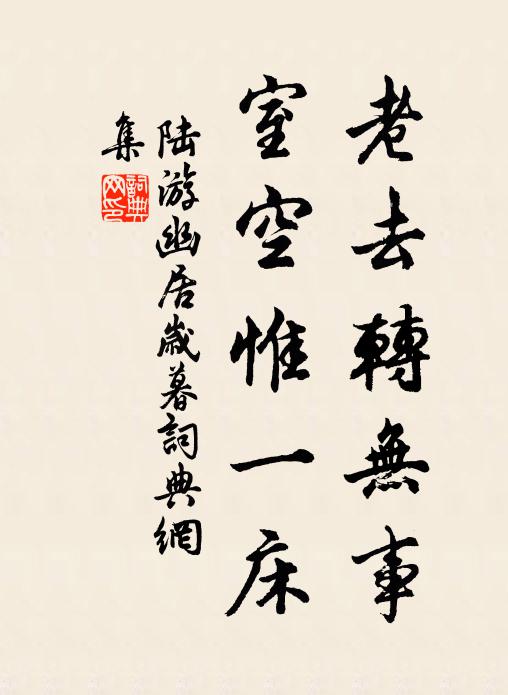 老去轉無事
室空惟一床
陸游幽居歲暮詞典網
集
詞典
网印